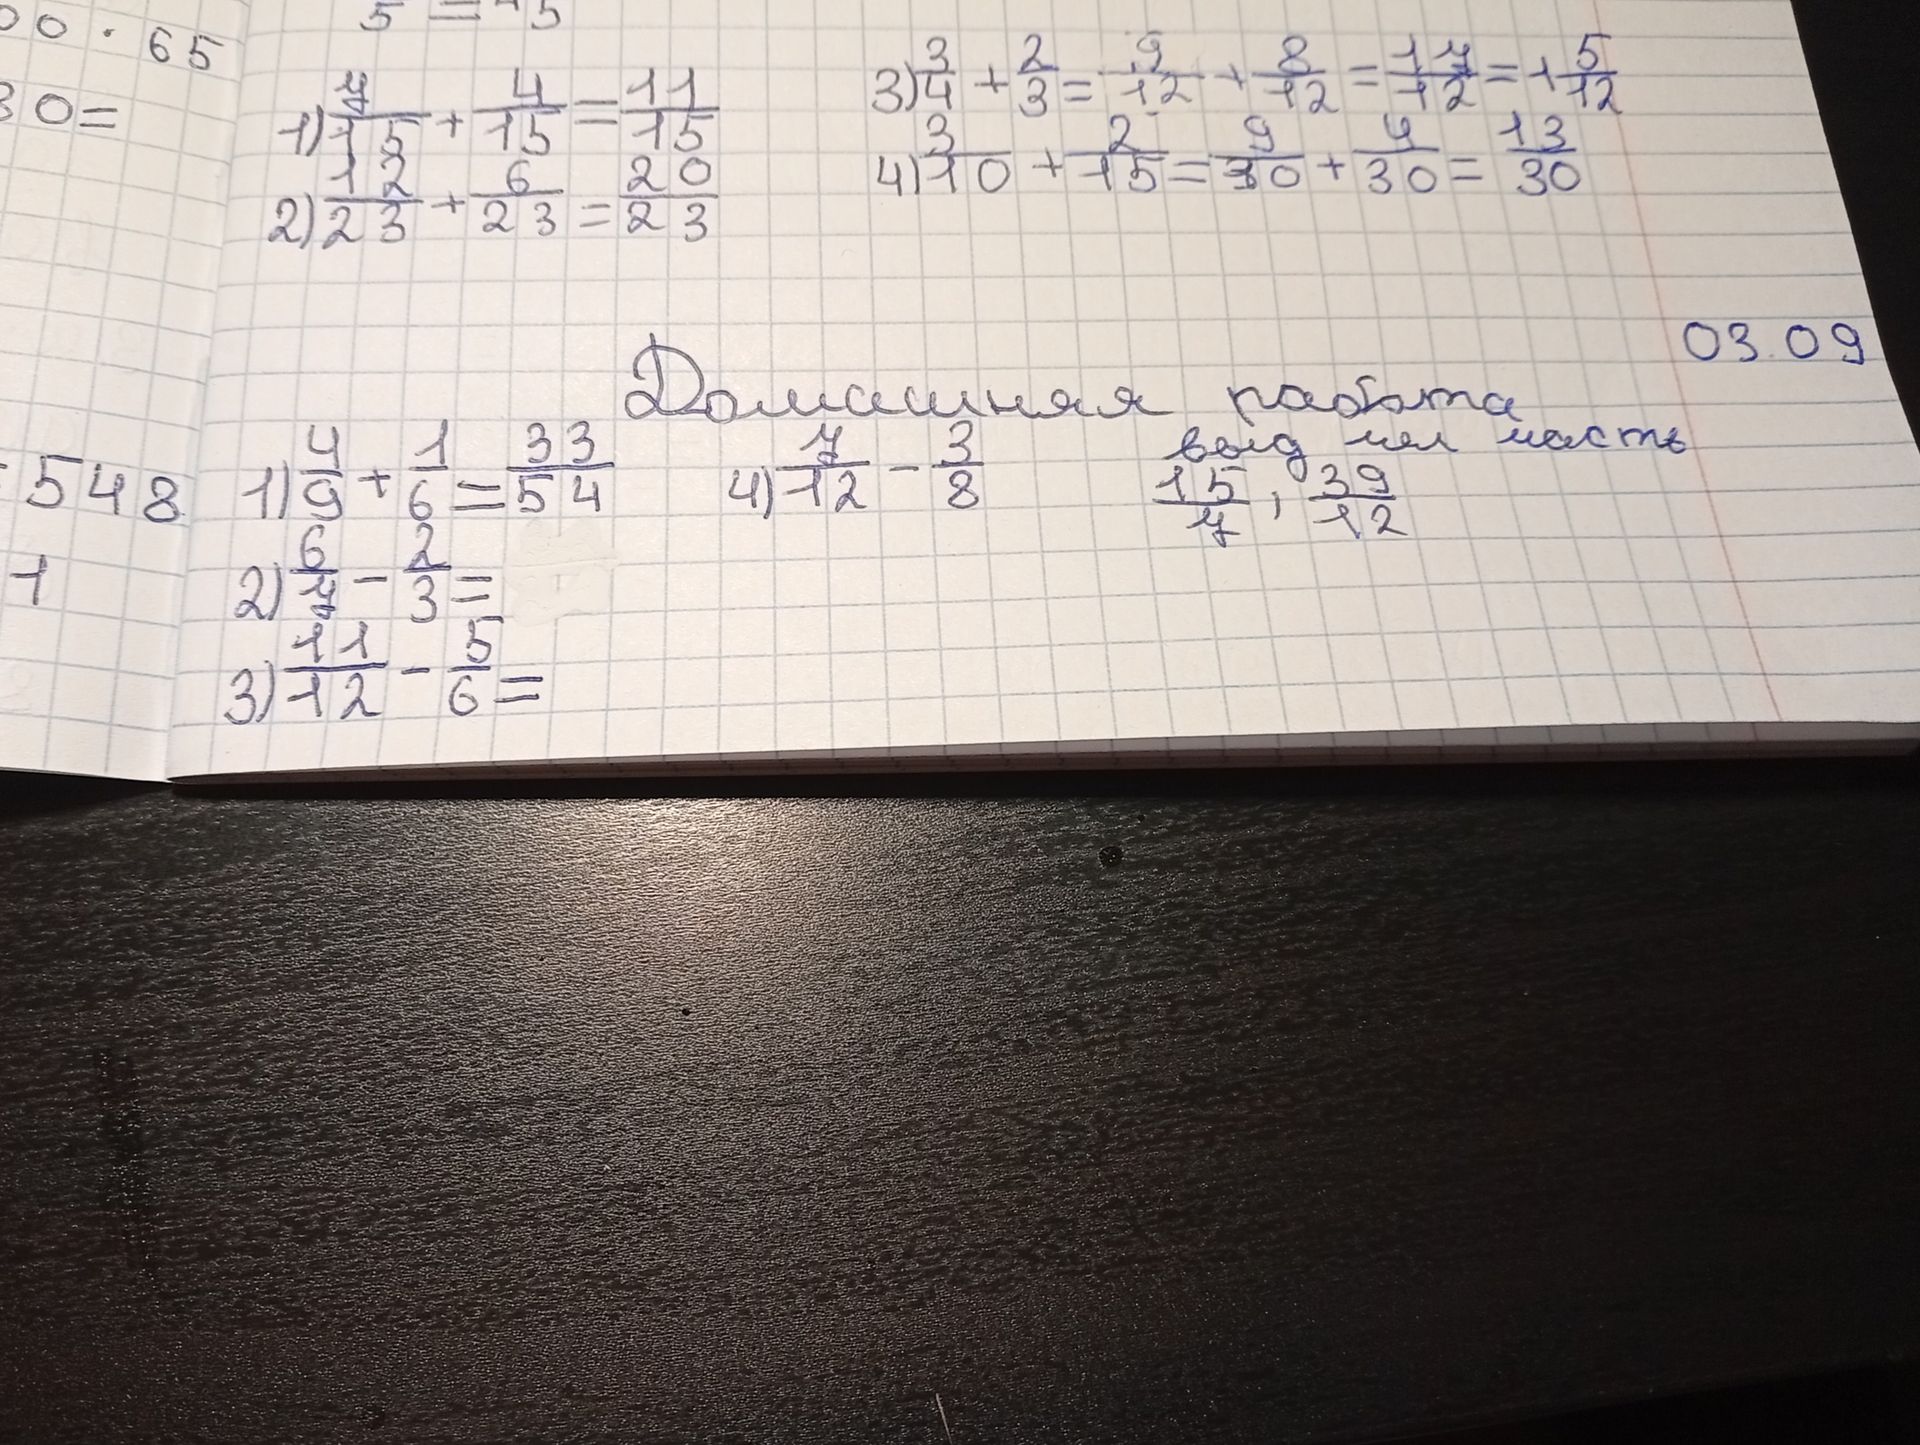 00 · 65
30=
548
1
5 = 15
1) 7/15 + 4/15 = 11/15
2) 12/23 + 6/23 = 20/23
3) 3/4 + 2/3 = 9/12 + 8/12 = 17/12 = 1 5/12
4) 3/10 + 2/15 = 9/30 + 4/30 = 13/30
03.09
Домашняя работа
1) 4/9 + 1/6 = 33/54
2) 6/7 - 2/3 =
3) 11/12 - 5/6 =
4) 7/12 - 3/8
выд цел часть
15/7, 39/12